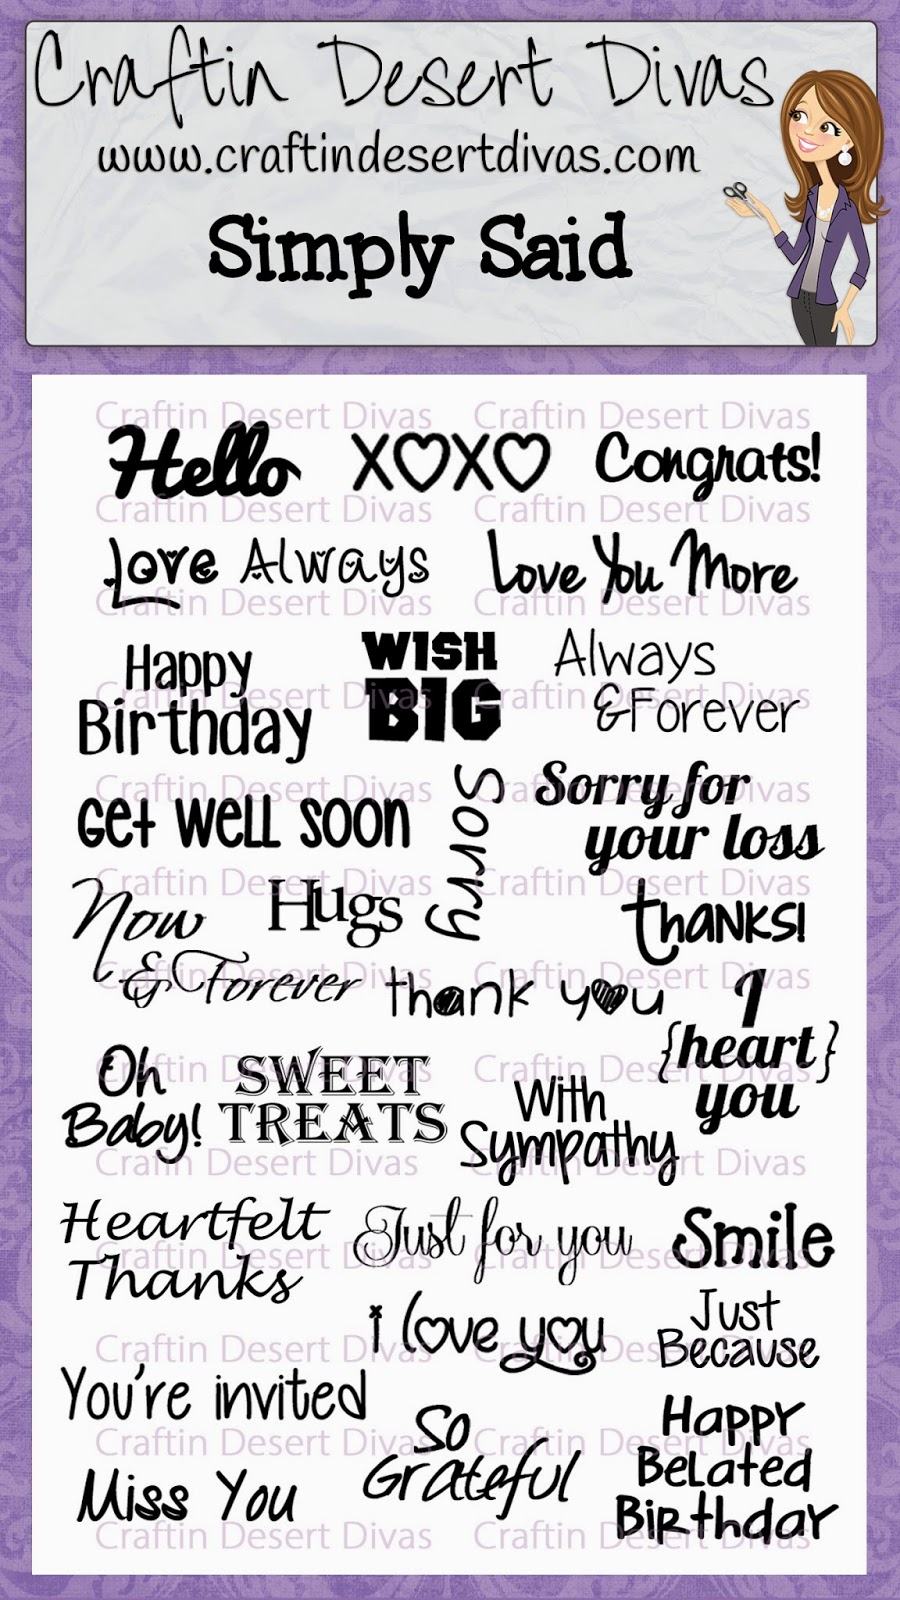 Craftin Desert Divas
www.craftindesertdivas.com
Simply Said
Craftin Desert Divas Craftin Desert Divas
Hello XOXO Congrats!
Craftin Desert Divas Craftin Desert Divas
Love Always Love You More
Craftin Desert Divas Craftin Desert Divas
Happy
Birthday
WISH
BIG
Always
&Forever
Craftin Desert Divas Craftin Desert Divas
Get Well Soon
Sorry
Sorry for
your loss
Craftin Desert Divas Craftin Desert Divas
Now
& Forever
Hugs
Thanks!
Craftin Desert Divas Craftin Desert Divas
thank you
I
{heart}
you
Craftin Desert Divas Craftin Desert Divas
Oh
Baby!
SWEET
TREATS
With
Sympathy
Craftin Desert Divas Craftin Desert Divas
Craftin Desert Divas Craftin Desert Divas
Heartfelt
Thanks
Just for you
Smile
Craftin Desert Divas Craftin Desert Divas
i love you
Just
Because
Craftin Desert Divas Craftin Desert Divas
You're invited
So
Grateful
Happy
Belated
Birthday
Craftin Desert Divas Craftin Desert Divas
Miss You
Craftin Desert Divas Craftin Desert Divas